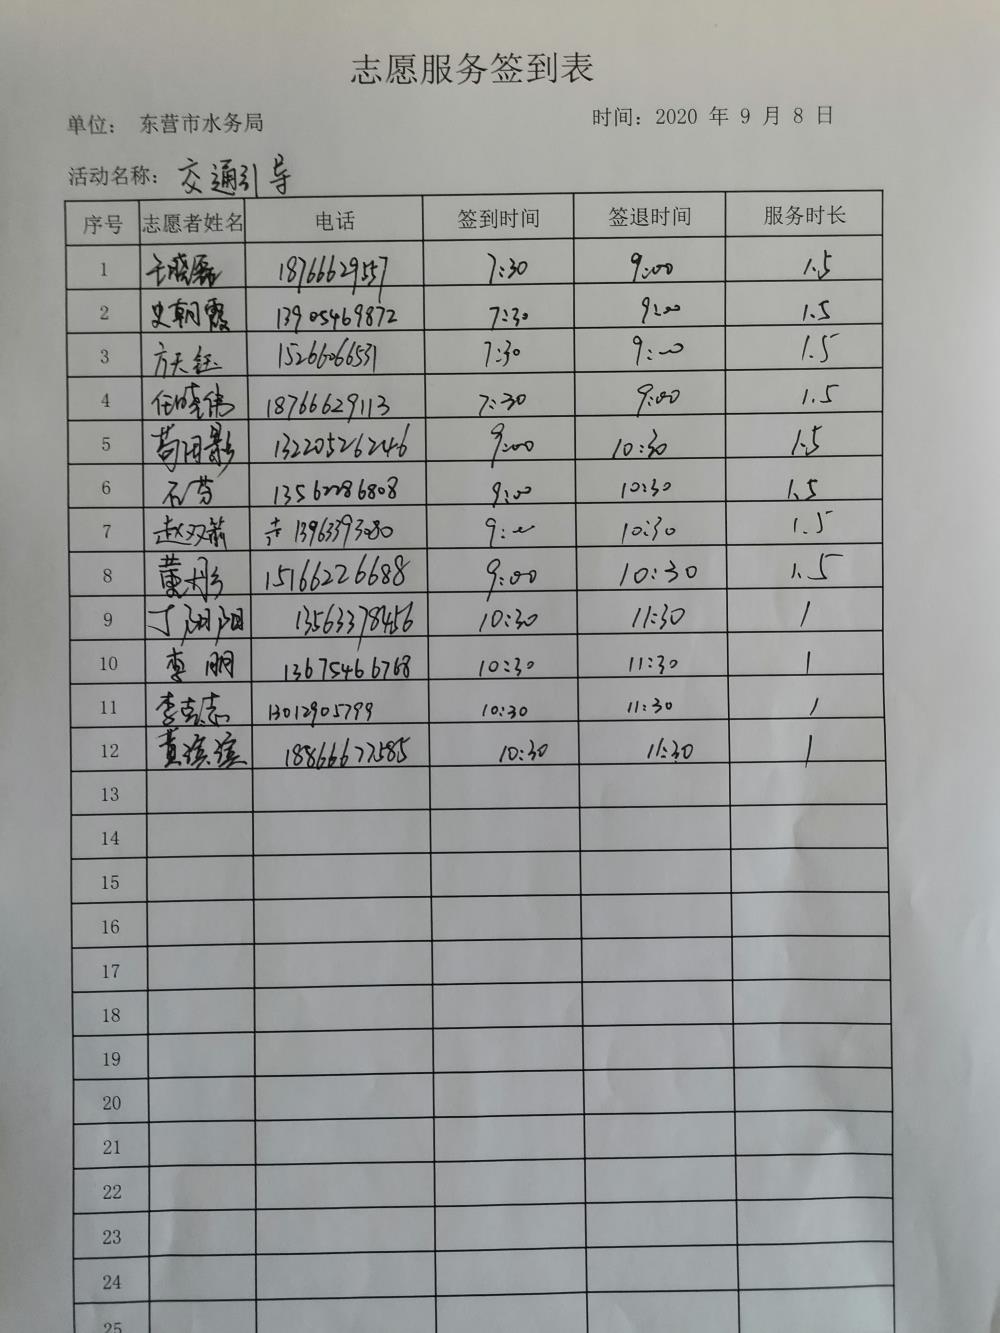 志愿服务签到表
单位： 东营市水务局 时间：2020 年 9 月 8 日
活动名称：交通引导
序号 志愿者姓名 电话 签到时间 签退时间 服务时长
1 王晓磊 18766629557 7:30 9:00 1.5
2 史朝霞 13905469872 7:30 9:00 1.5
3 方天钰 15266066531 7:30 9:00 1.5
4 任晓伟 18766629113 7:30 9:00 1.5
5 13220526246 9:00 10:30 1.5
6 石芬 13562286808 9:00 10:30 1.5
7 赵双箭 13963393080 9:00 10:30 1.5
8 董彤 15166226688 9:00 10:30 1.5
9 丁阳阳 13563378456 10:30 11:30 1
10 李朋 13675466768 10:30 11:30 1
11 李克志 13012905799 10:30 11:30 1
12 黄滨滨 18866677585 10:30 11:30 1
13
14
15
16
17
18
19
20
21
22
23
24
25